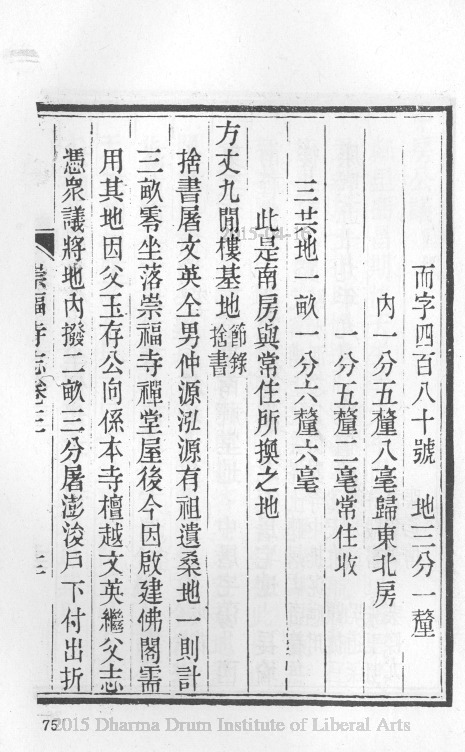 而字四百八十號　地三分一釐
內一分五釐八毫歸東北房
一分五釐二毫常住收
三共地一畝一分六釐六毫
此是南房與常住所換之地
方丈九間樓基地節錄捨書
捨書屠文英仝男仲源泓源有祖遺桑地一則計
二畝零坐落崇福寺禪堂屋後今因啟建佛閣需
用其地因父玉存公向係本寺檀越文英繼父志
憑眾議將地內撥二畝三分屠澎浚戶下付出折
崇福寺志卷三
三
75
2015 Dharma Drum Institute of Liberal Arts